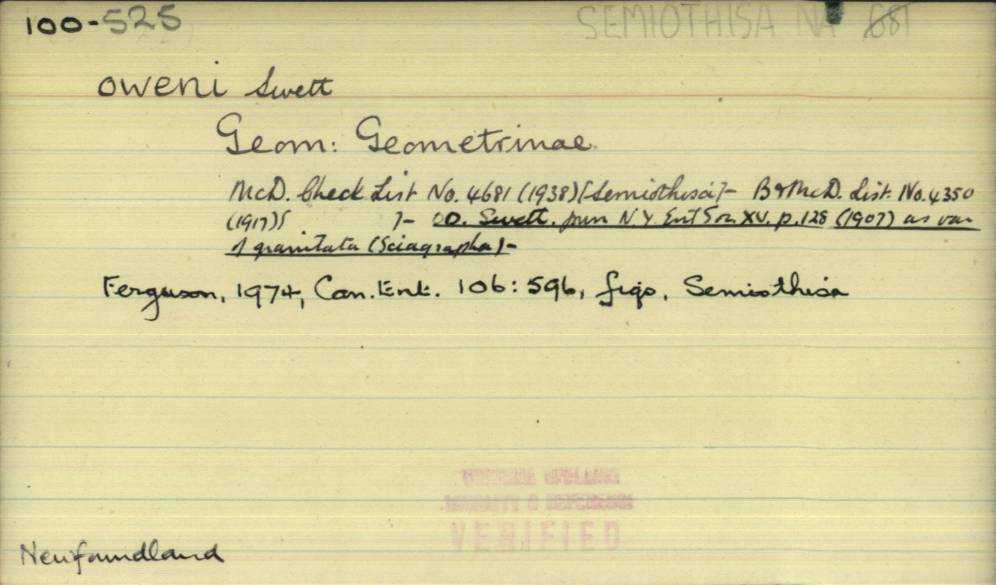 100-525
SEMIOTHISA NA 681
oweni Swett
Geom: Geometrinae
McD. Check List No. 4681 (1938) [Semiothisa] - B & McD. List. No. 4350
(1917) [ ] - O.D. Swett. Journ N.Y. Ent Soc. XV. p. 128 (1907) as var
of granitata (Sciagrapha) -
Ferguson, 1974, Can. Ent. 106: 596, figs. Semiothisa
ORIGINAL SPELLING
LOCALITY & REFERENCE
VERIFIED
Newfoundland